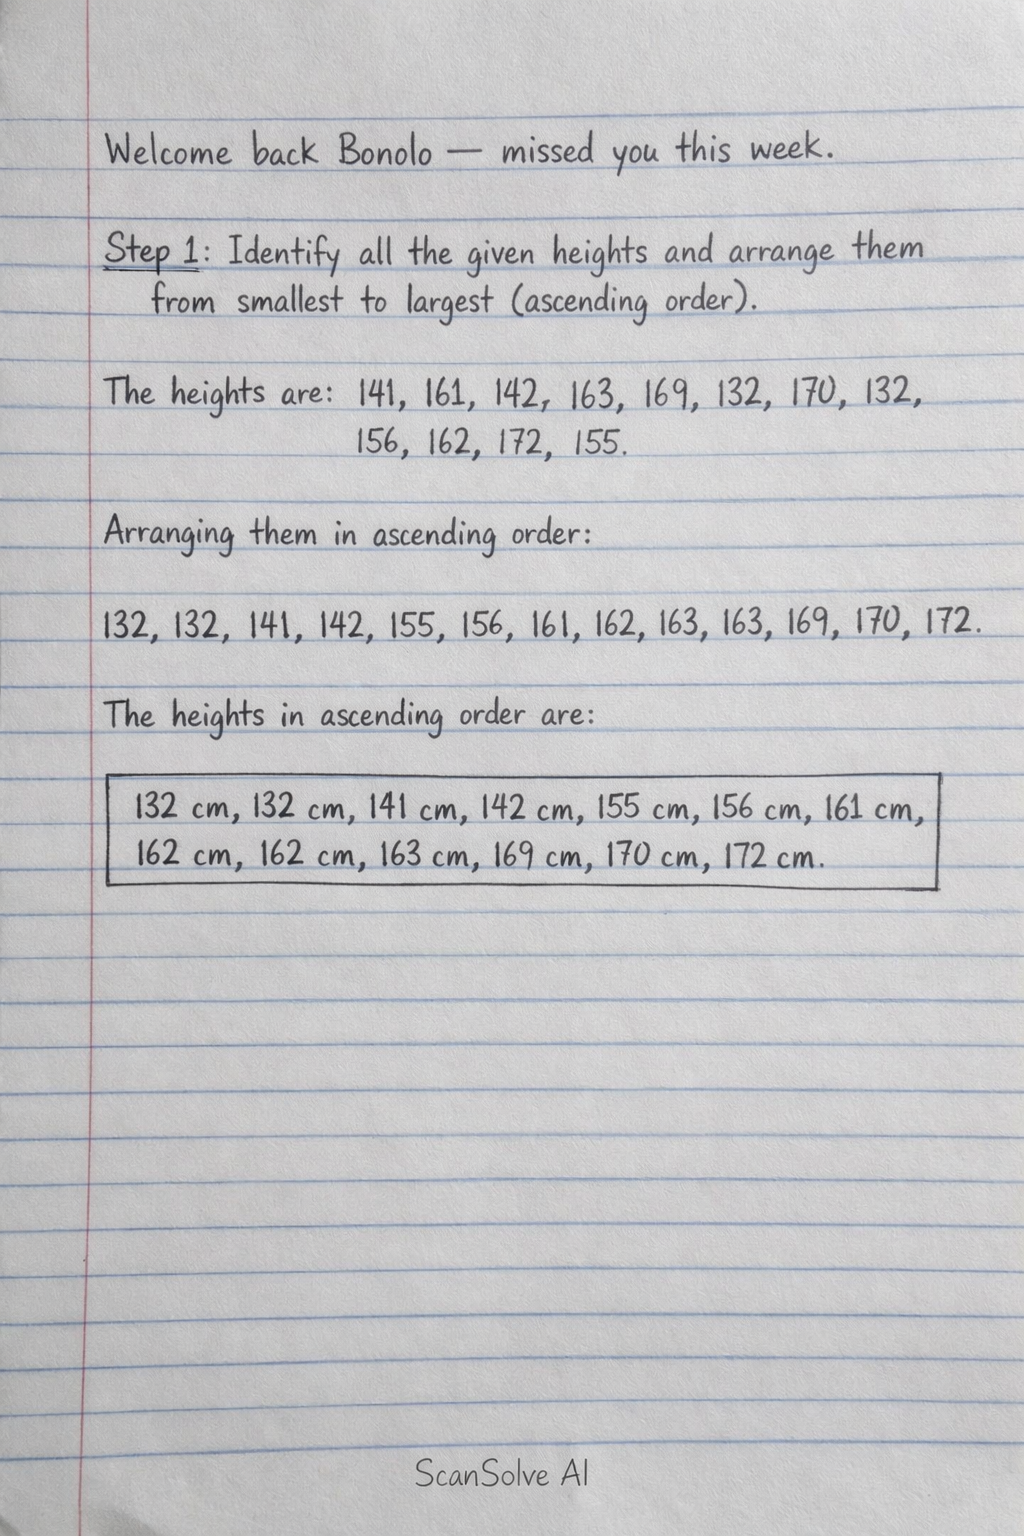 Welcome back Bonolo — missed you this week.
Step 1: Identify all the given heights and arrange them
from smallest to largest (ascending order).
The heights are: 141, 161, 142, 163, 169, 132, 170, 132,
156, 162, 172, 155.
Arranging them in ascending order:
132, 132, 141, 142, 155, 156, 161, 162, 163, 163, 169, 170, 172.
The heights in ascending order are:
132 cm, 132 cm, 141 cm, 142 cm, 155 cm, 156 cm, 161 cm,
162 cm, 162 cm, 163 cm, 169 cm, 170 cm, 172 cm.
ScanSolve AI